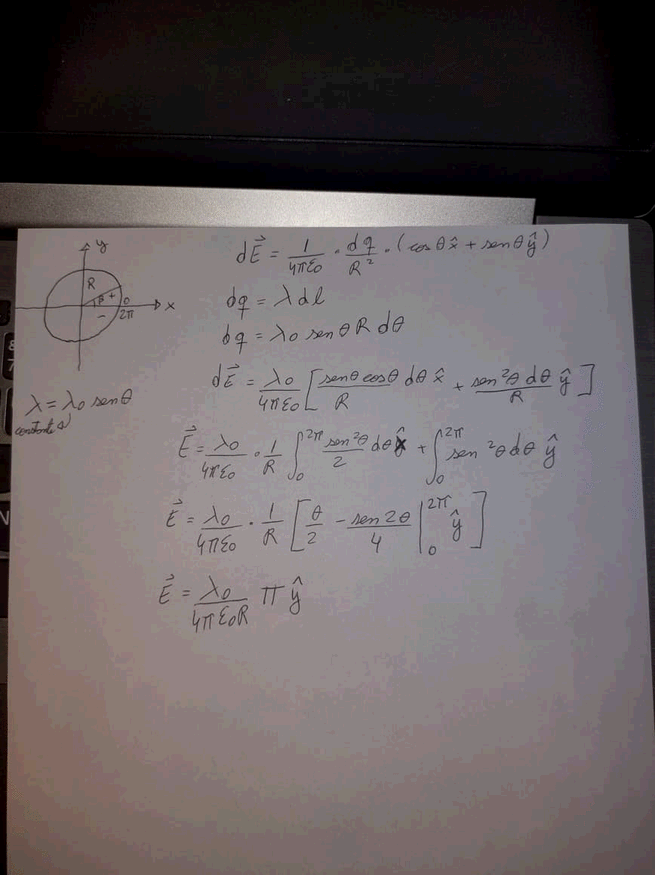 y
R
θ + 0 x
− 2π
λ = λ₀ senθ
constante
dE⃗ = 1/(4πε₀) · dq/R² · (cosθ x̂ + senθ ŷ)
dq = λ dl
dq = λ₀ senθ R dθ
dE⃗ = λ₀/(4πε₀) [ (senθ cosθ)/R dθ x̂ + (sen²θ dθ)/R ŷ ]
E⃗ = λ₀/(4πε₀) · 1/R ∫₀^2π (sen²θ)/2 dθ x̂ + ∫₀^2π sen²θ dθ ŷ
E⃗ = λ₀/(4πε₀) · 1/R [ θ/2 − (sen2θ)/4 |₀^2π ŷ ]
E⃗ = λ₀/(4πε₀R) π ŷ